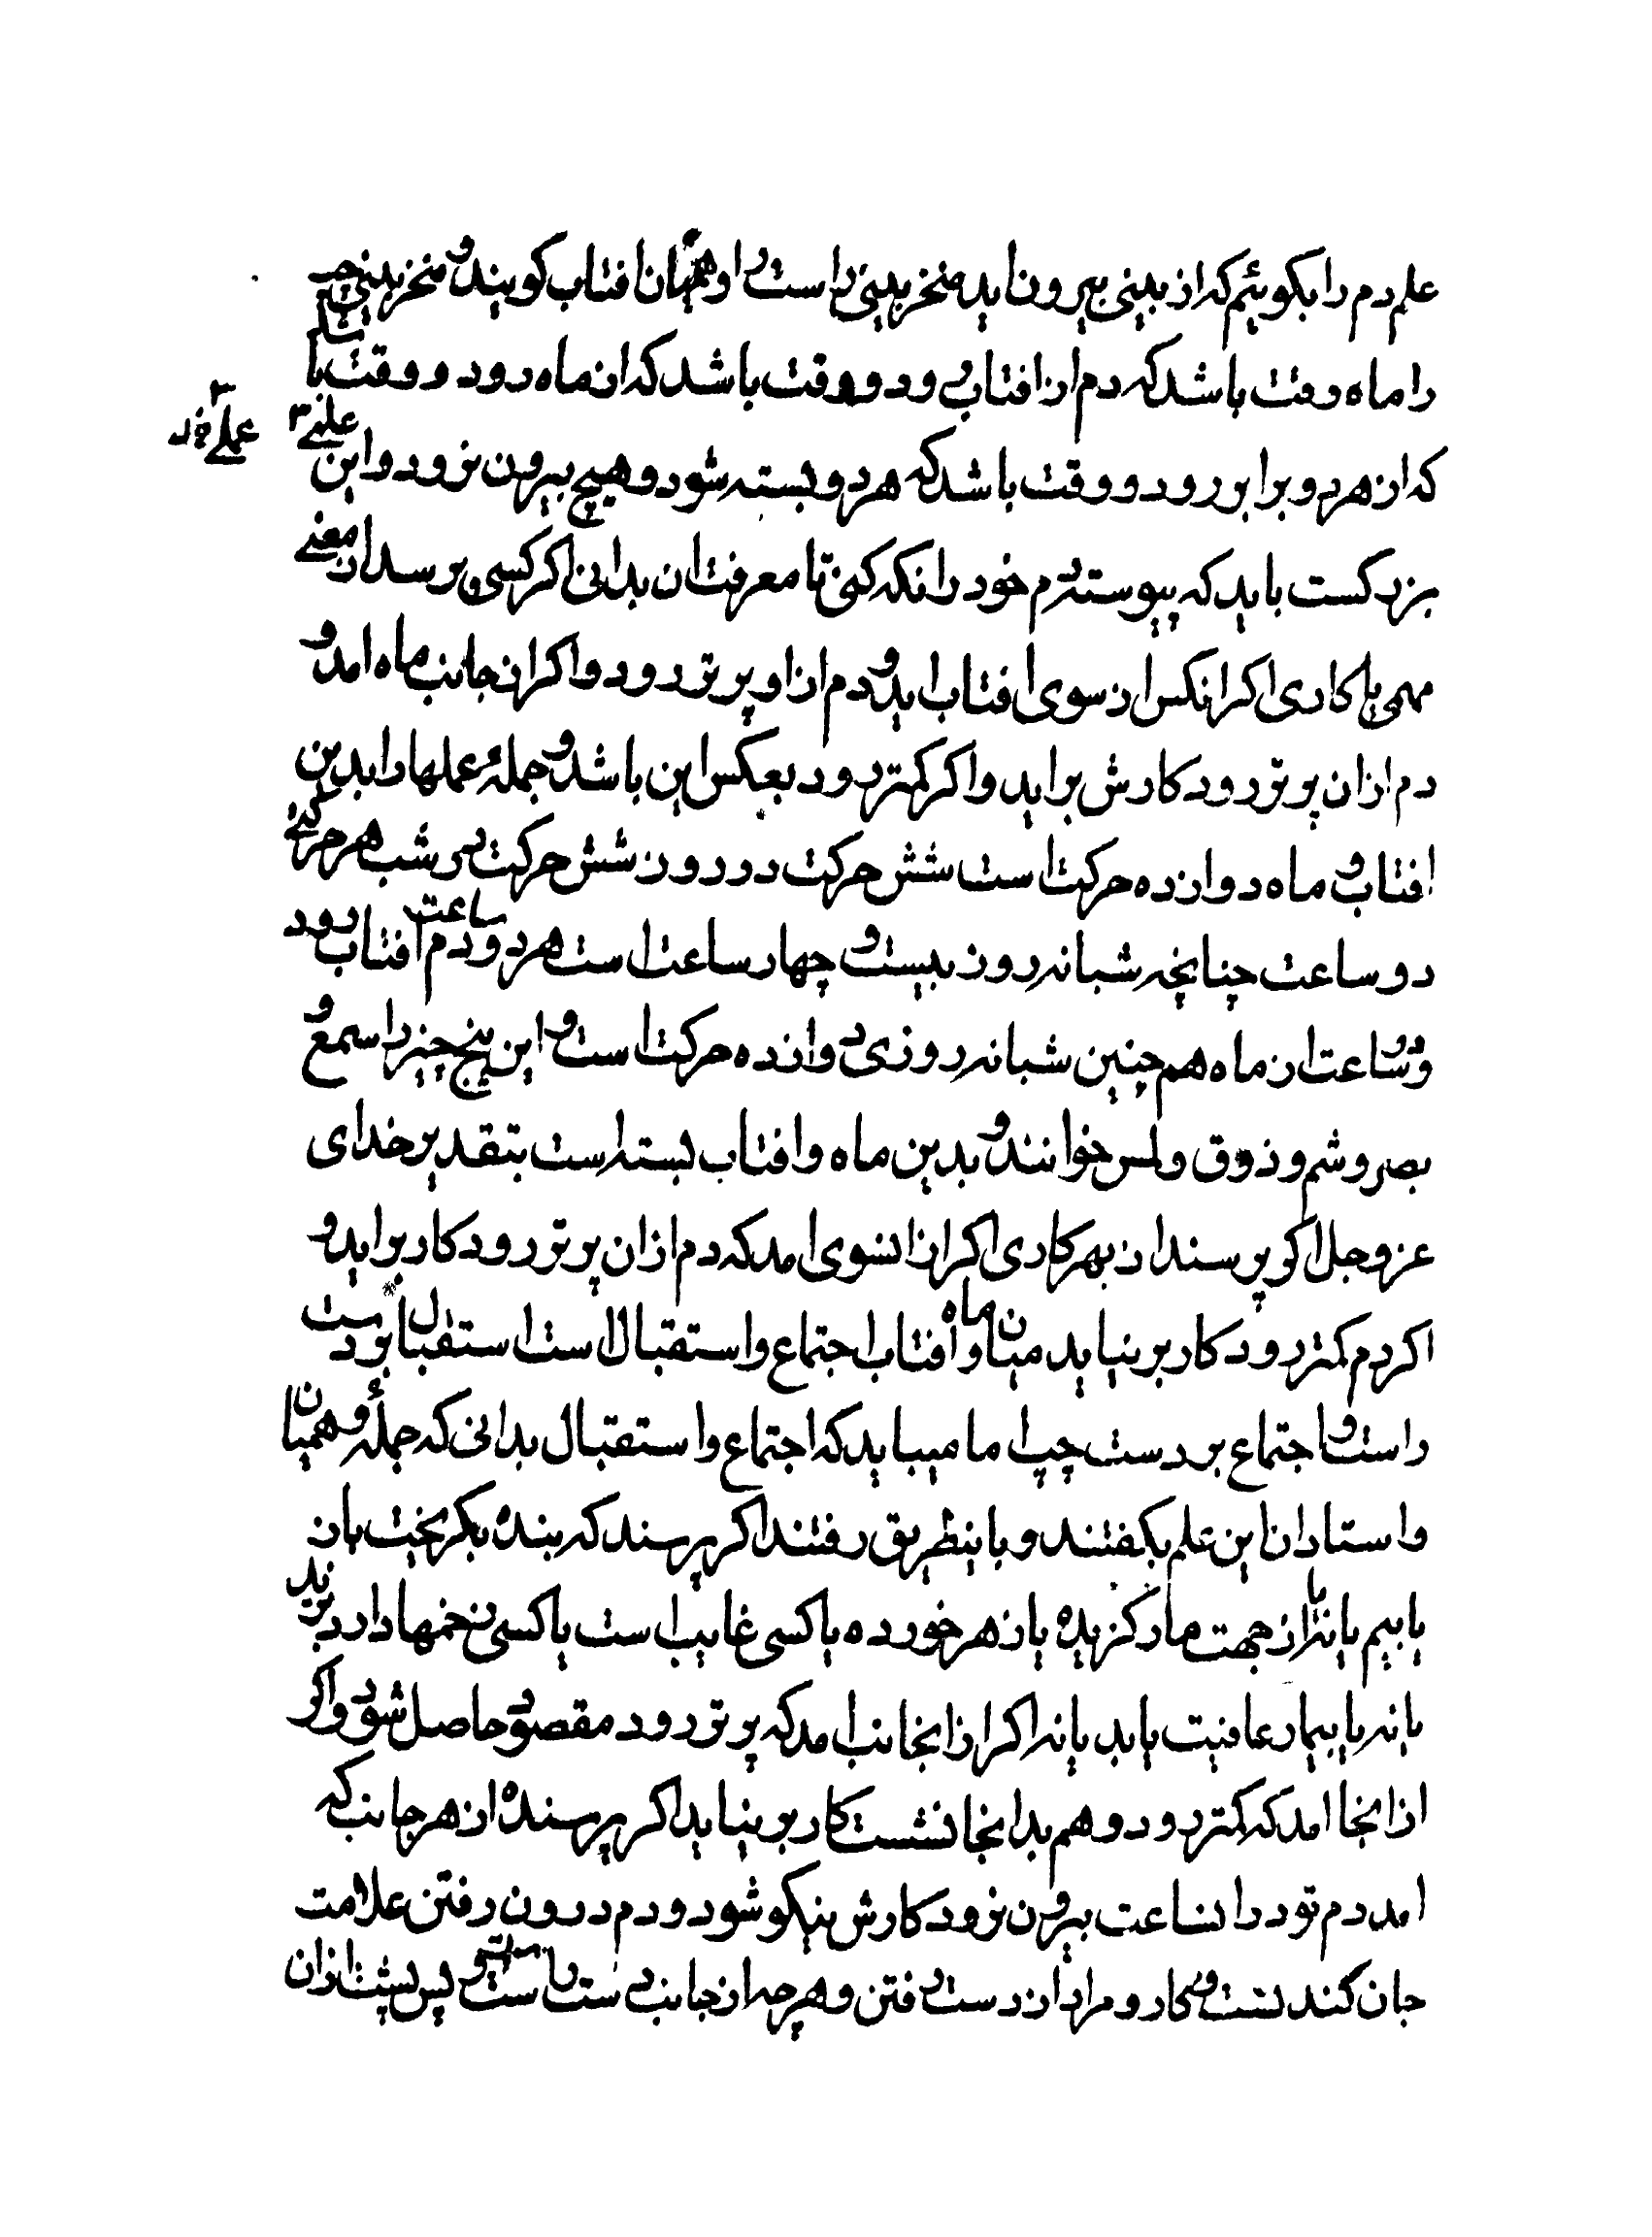 علم دم را بکوییم که از بینی بیرون اید منخر بینی راست را وهمیان افتاب کویند و منخر بینی چپ
را ماه وقت باشد که دم از افتاب رود و وقت باشد که از ماه رود و وقت باشد
که از هر دو برابر رود و وقت باشد که هر دو بسته شود و هیچ بیرون نرود و این علمی
بزرکست باید که پیوسته دم خود را نکه کنی تا معرفت ان بدانی اکر کسی پرسد از معنی
مهمی یا کاری اکر انکس از سوی افتاب اید و دم از او پر تر رود و اکر از جانب ماه امد و
دم ازان پر تر رود کارش براید و اکر کمتر رود بعکس این باشد و جملهٔ عملها را بدین
افتاب و ماه دوازده حرکت است شش حرکت در روز شش حرکت در شب هر حرکتی
دو ساعت چنانچه شبانه روز بیست و چهار ساعت است هر دو ساعت دم افتاب رود
و دو ساعت از ماه هم چنین شبانه روزی دوازده حرکت است و این پنج چیز را سمع و
بصر و شم و ذوق و لمس خوانند و بدین ماه و افتاب بسته است بتقدیر خدای
عز و جل اکر پرسند از بهر کاری اکر ازانسوی امد که دم ازان پر تر رود کار براید و
اکر دم کمتر رود کار بر نیاید میان ماه و افتاب اجتماع و استقبال است استقبال بر دست
راست و اجتماع بر دست چپ اما میباید که اجتماع و استقبال بدانی که جملهٔ وهمیان
و استادان این علم بکفتند و باینطریق رفتند اکر پرسند که بنده بکریخت باز
یابیم یا نه یا از جهت مار کزیده یا زهر خورده یا کسی غایب است یا کسی زخمها دارد بزید
یا نه یا بیمار عافیت یابد یا نه اکر ازانجانب امد که پر تر رود مقصود حاصل شود و اکر
ازانجا امد که کمتر رود و هم بدانجا نشست کار بر نیاید اکر پرسنده از هر جانب که
امد دم تو دران ساعت بیرون نرود کارش نیکو شود و دم درون رفتن علامت
جان کندنست و کار و مراد از دست رفتن و هر چه از جانب دست راست است و پس پشت ازان